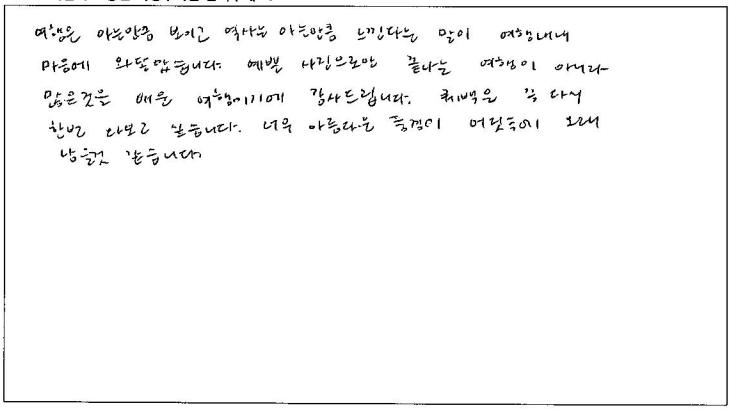 여행은 아는만큼 보이고 역사는 아는만큼 느낀다는 말이 여행내내
마음에 와닿았습니다. 예쁜 사진으로만 끝나는 여행이 아니라
많은것을 배운 여행이기에 감사드립니다. 퀘백은 꼭 다시
한번 와보고 싶습니다. 너무 아름다운 풍경이 머릿속에 오래
남을것 같습니다.